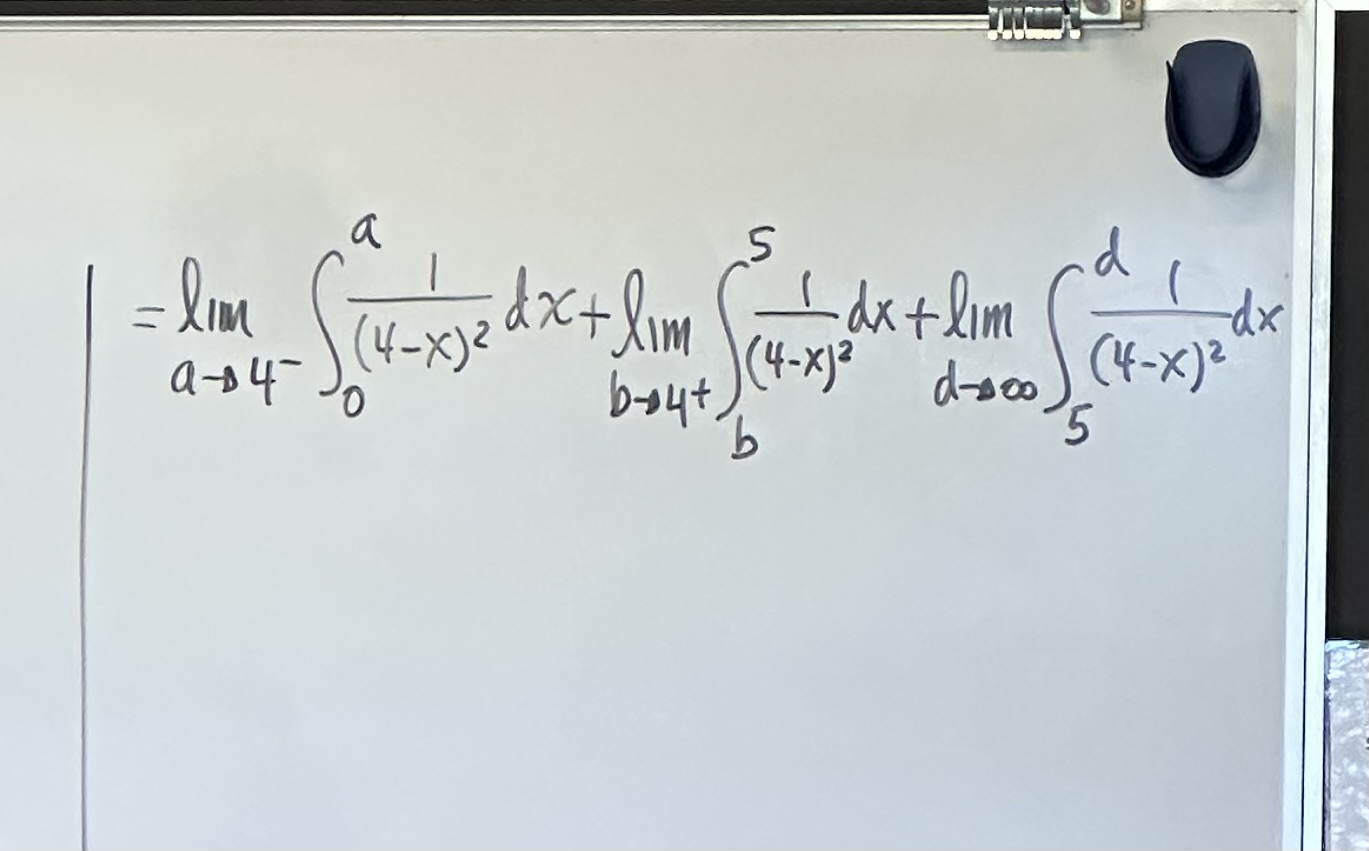 = lim a→4⁻ ∫₀ᵃ 1/(4-x)² dx + lim b→4⁺ ∫_b⁵ 1/(4-x)² dx + lim d→∞ ∫₅ᵈ 1/(4-x)² dx